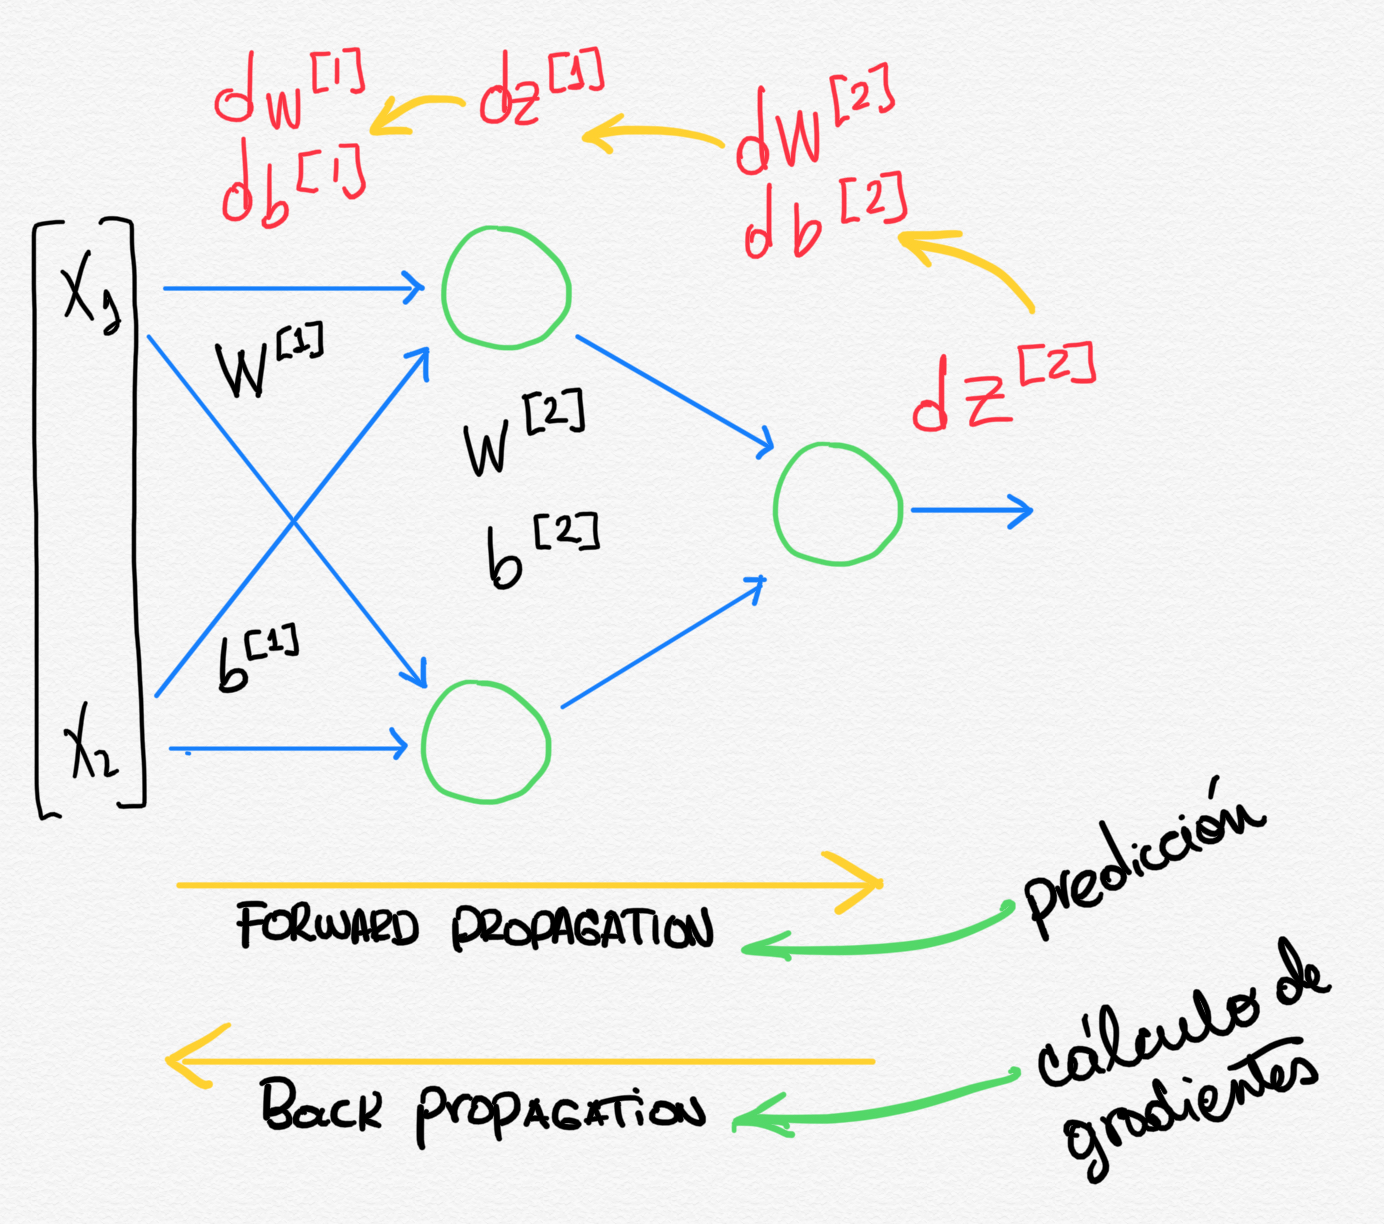 dw[1]
db[1]
dz[1]
dW[2]
db[2]
dz[2]
X1
W[1]
W[2]
b[2]
b[1]
X2
FORWARD PROPAGATION
predicción
Back PROPAGATION
cálculo de
gradientes